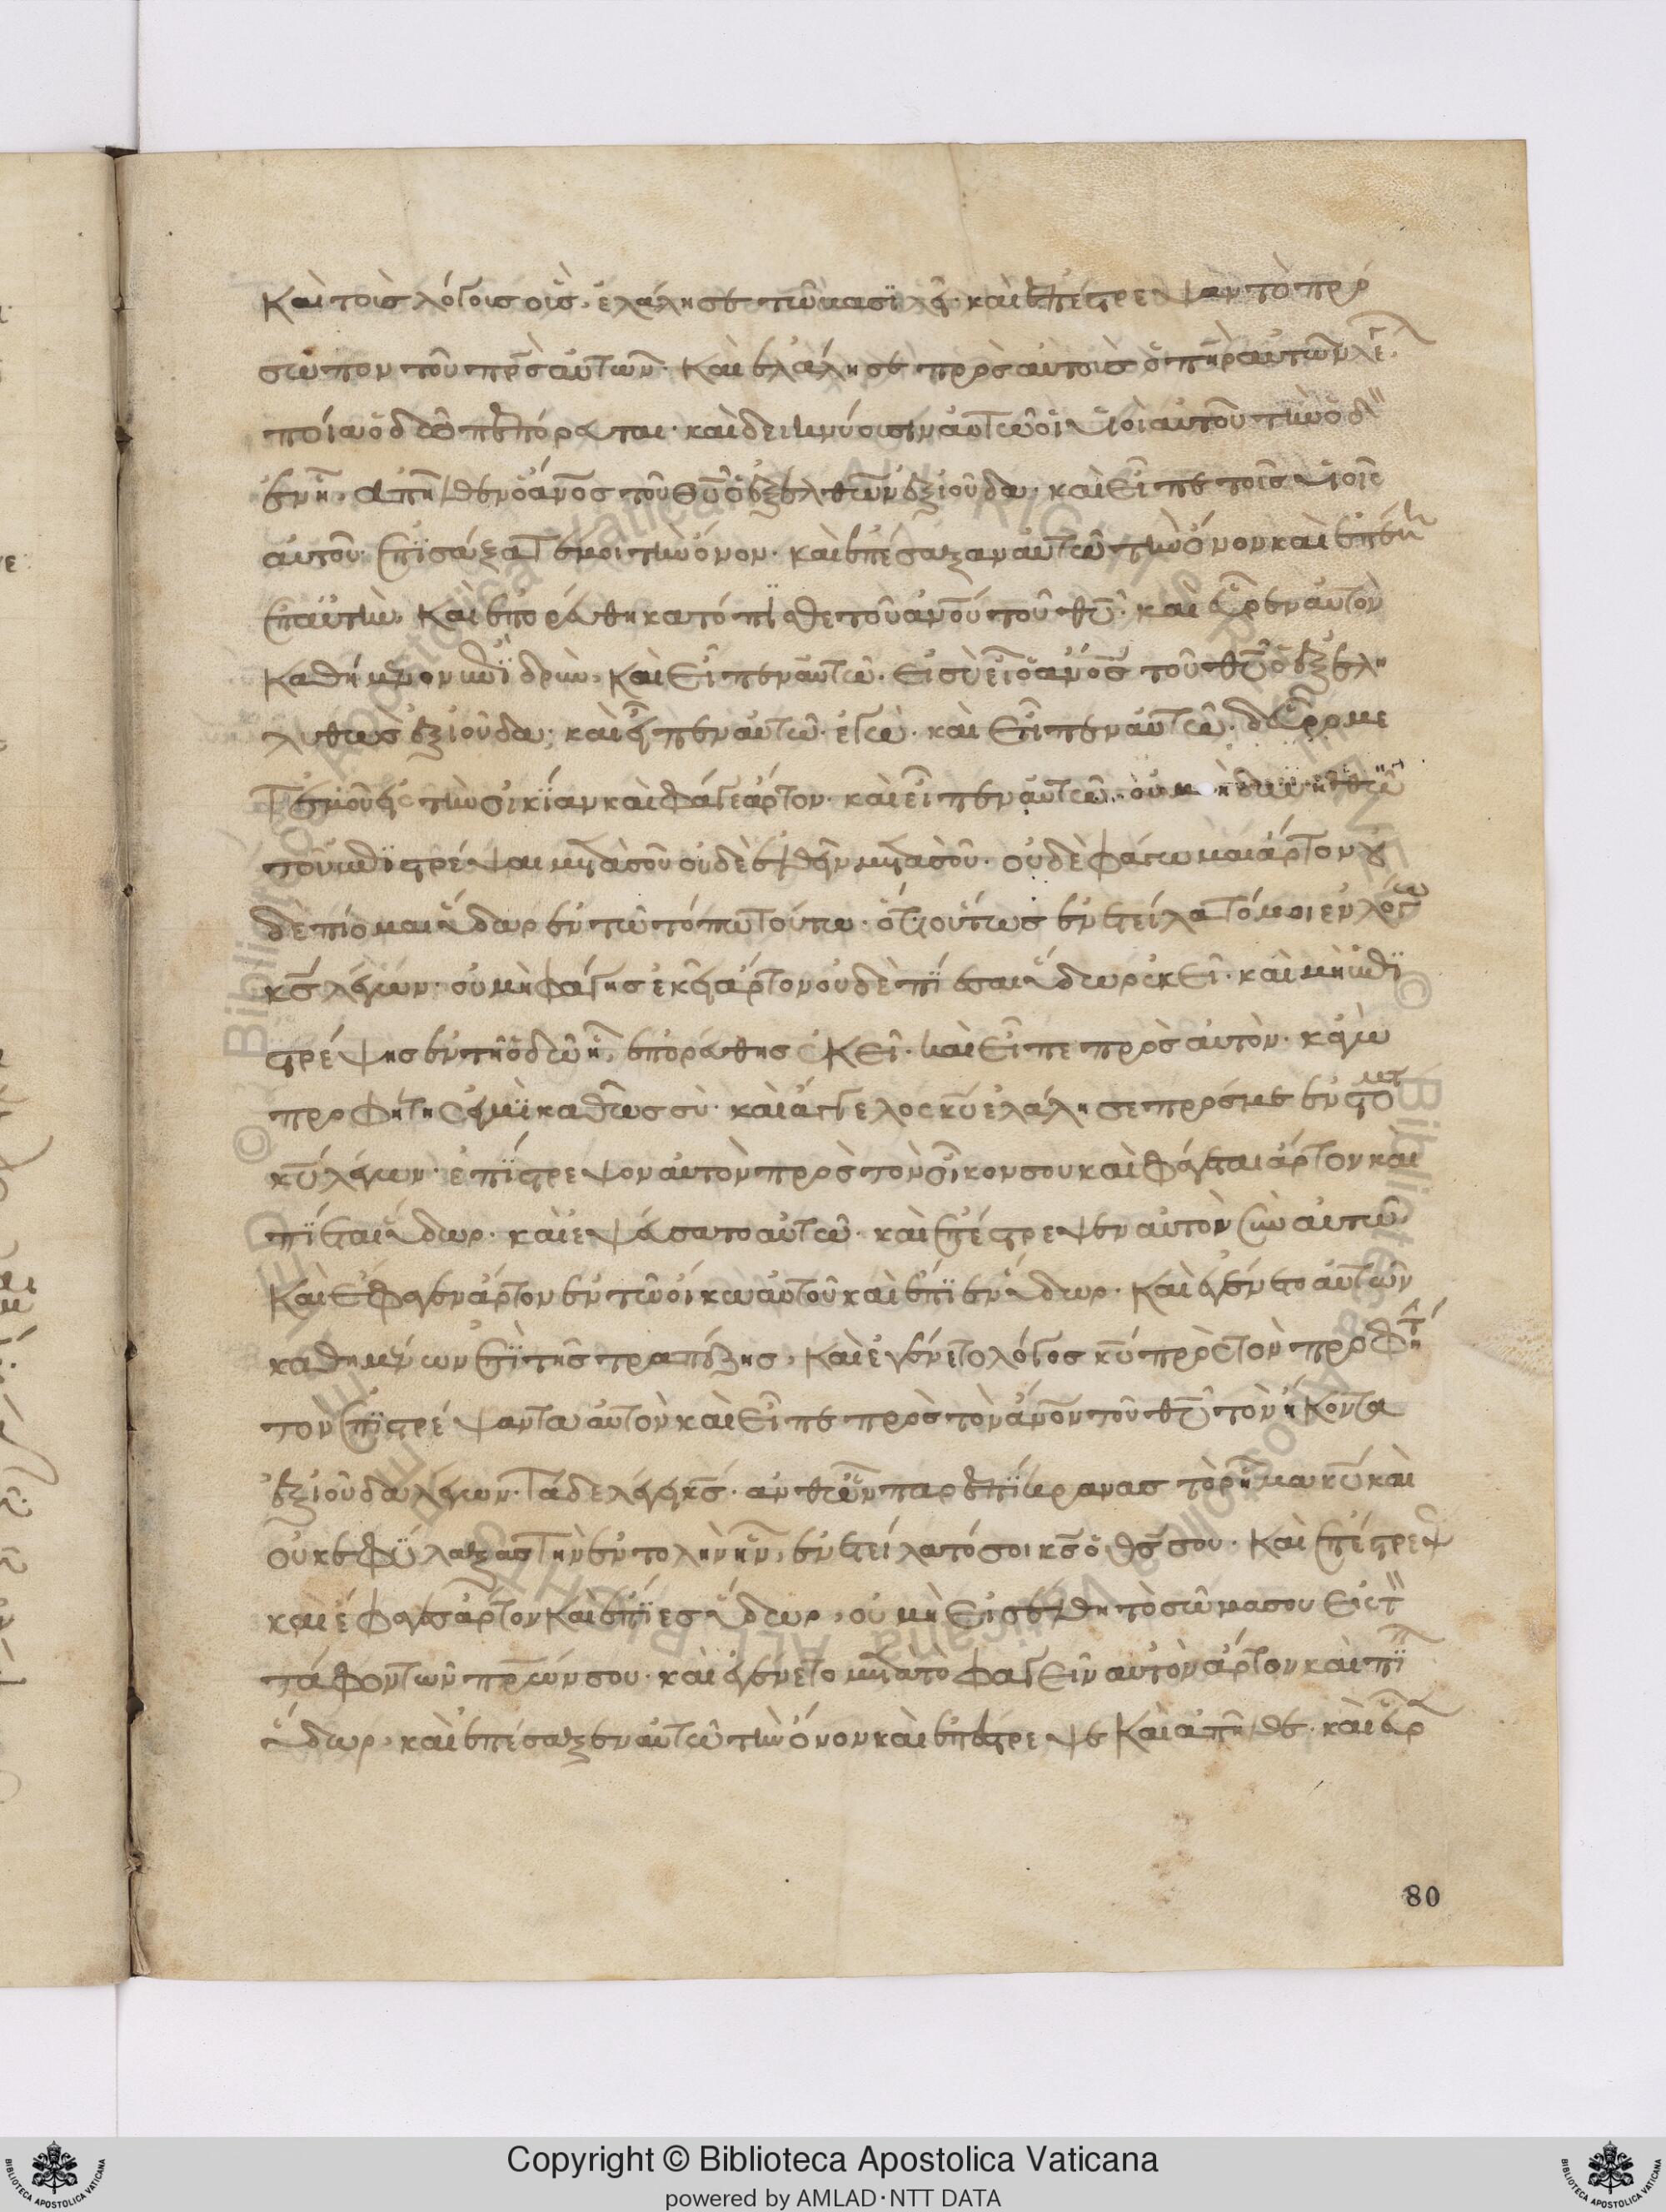 Καὶ τοὺς λόγους οὓς ἐλάλησε τῷ βασιλεῖ· καὶ ἐπέστρεψαν τὸ πρό
σωπον τοῦ πρ̅ς αὐτῶν· Καὶ ἐλάλησε πρὸς αὐτοὺς ὁ πη̅ρ αὐτῶν λέγ
ποία ὁδῷ πεπόρευται· καὶ δεικνύουσιν αὐτῷ οἱ υἱοὶ αὐτοῦ τὴν ὁδ
ἐν ᾗ ἀπῆλθεν ὁ ἄνο̅ς τοῦ θυ̅ ὁ ἐξελθὼν ἐξ ἰούδα· καὶ εἶπε τοῖς υἱοῖς
αὐτοῦ· ἐπισάξατέ μοι τὴν ὄνον· καὶ ἐπέσαξαν αὐτῷ τὴν ὄνον καὶ ἐπέβη
ἐπ αὐτήν· Καὶ ἐπορεύθη κατόπισθε τοῦ ἀνο̅υ τοῦ θυ̅· καὶ εὗρεν αὐτὸν
καθήμενον ὑπὸ δρῦν· καὶ εἶπεν αὐτῷ· εἰ σὺ εἶ ὁ ἄνο̅ς τοῦ θυ̅ ὁ ἐξελη
λυθὼς ἐξ ἰούδα· καὶ εἶπεν αὐτῷ· ἐγώ· καὶ εἶπεν αὐτῷ· δεῦρο με
τ ἐμοῦ εἰς τὴν οἰκίαν καὶ φάγε ἄρτον· καὶ εἶπεν αὐτῷ· οὐ μὴ δυνηθῶ
τοῦ ὑποστρέψαι μετὰ σοῦ οὐδὲ ἐλθεῖν μετὰ σοῦ· οὐδὲ φάγωμαι ἄρτον οὐ
δὲ πίομαι ὕδωρ ἐν τῷ τόπῳ τούτῳ· ὅτι οὕτως ἐντείλατό μοι ἐν λόγῳ
κς̅ λέγων· οὐ μὴ φάγῃς ἐκεῖ ἄρτον οὐδὲ πίεσαι ὕδωρ ἐκεῖ· καὶ μὴ ὑπο
στρέψῃς ἐν τῇ ὁδῷ ᾗ ἐπορεύθης ἐκεῖ· καὶ εἶπε πρὸς αὐτόν· κἀγὼ
προφήτης εἰμὶ καθὼς σύ· καὶ ἄγγελος κυ̅ ἐλάλησε πρός με ἐν στόματι
κυ̅ λέγων· ἐπίστρεψον αὐτὸν πρὸς τὸν οἶκον σου καὶ φάγεται ἄρτον καὶ
πίεται ὕδωρ· καὶ ἐψεύσατο αὐτῷ· καὶ ἐπέστρεψεν αὐτὸν σὺν αὐτῷ
Καὶ ἔφαγεν ἄρτον ἐν τῷ οἴκῳ αὐτοῦ καὶ ἔπιεν ὕδωρ· Καὶ ἐγένετο αὐτῶν
καθημένων ἐπὶ τῆς τραπέζης· Καὶ ἐγένετο λόγος κυ̅ πρὸς τὸν προφήτ
τὸν ἐπιστρέψαντα αὐτὸν καὶ εἶπε πρὸς τὸν ἄνο̅ν τοῦ θυ̅ τὸν ἥκοντα
ἐξ ἰούδα λέγων· Τάδε λέγει κς̅· ἀνθ ὧν παρεπίκρανας τὸ ῥῆμα κυ̅ καὶ
οὐκ ἐφύλαξας τὴν ἐντολὴν ἣν ἐντείλατό σοι κς̅ ὁ θς̅ σου· Καὶ ἐπέστρεψ
καὶ ἔφαγες ἄρτον καὶ ἔπιες ὕδωρ· οὐ μὴ εἰσέλθῃ τὸ σῶμα σου εἰς τ
τάφον τῶν πρ̅ων σου· καὶ ἐγένετο μετὰ τὸ φαγεῖν αὐτὸν ἄρτον καὶ πι
ὕδωρ· καὶ ἐπέσαξεν αὐτῷ τὴν ὄνον καὶ ἐπέστρεψε Καὶ ἀπῆλθε· καὶ εὗρ
80
Copyright © Biblioteca Apostolica Vaticana
powered by AMLAD·NTT DATA